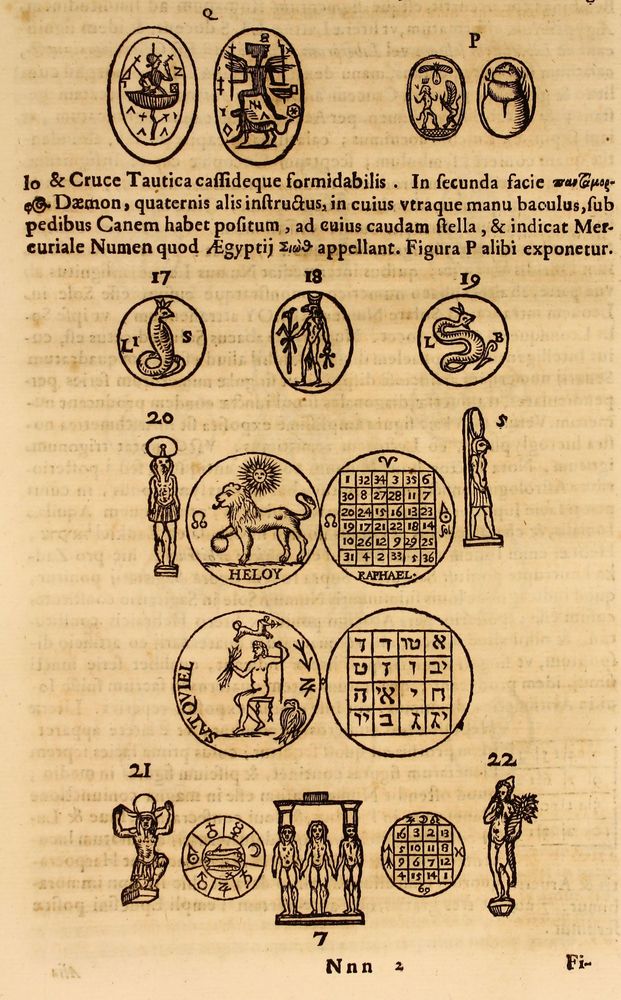 Q
P
Io & Cruce Tautica cassideque formidabilis. In secunda facie παντάμορ-
φος Dæmon, quaternis alis instructus, in cuius vtraque manu baculus, sub
pedibus Canem habet positum, ad cuius caudam stella, & indicat Mer-
curiale Numen quod Ægyptij Σιωθ appellant. Figura P alibi exponetur.
17 18 19
LI S
L B
20 S
♈
1 32 34 3 35 6
30 8 27 28 11 7
20 24 15 16 13 23
19 17 21 22 18 14
10 26 12 9 29 25
31 4 2 33 5 36
☊ ☊ Sol
HELOY RAPHAEL.
SATQVIEL
א טו ד ד
יב ו ז ט
ח י יא ה
יג ג ב יו
21 22
16 3 2 13
5 10 11 8
9 6 7 12
4 15 14 1
69
7
Nnn 2 Fi-